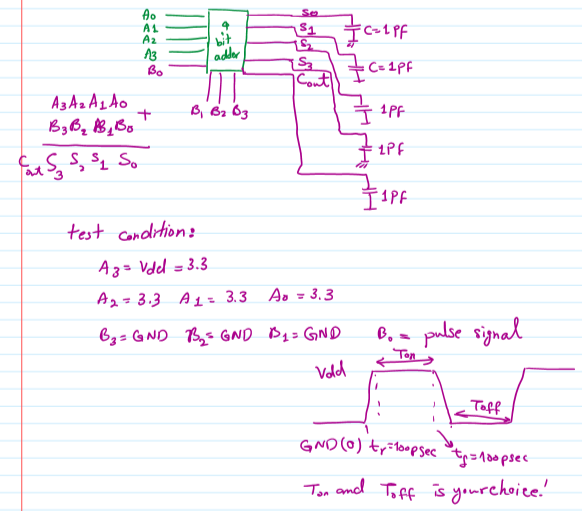 A0
A1
A2
A3
B0
4
bit
adder
S0
S1
S2
S3
Cout
B1 B2 B3
C=1PF
C=1PF
1PF
1PF
1PF
A3A2A1A0
B3B2B1B0 +
Cout S3 S2 S1 S0
test condition:
A3 = Vdd = 3.3
A2 = 3.3 A1 = 3.3 A0 = 3.3
B3 = GND B2 = GND B1 = GND B0 = pulse signal
Ton
Vdd
Toff
GND(0) tr=100psec tf=100psec
Ton and Toff is your choice!